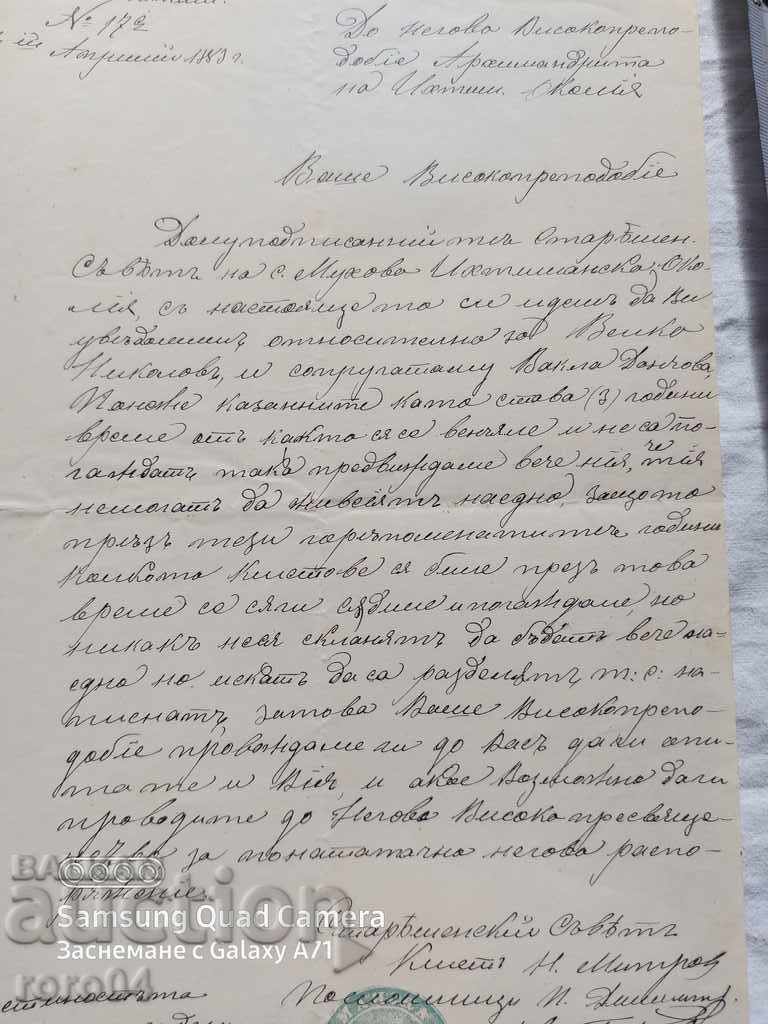 № 179
Априлий 1883 г.
До Негово Високопрепо-
добие Архимандрита
на Ихтим. Околия
Ваше Високопреподобіе
Долуподписаний тъ Старѣшен.
Съвѣтъ на с. Мухова Ихтиманска Око-
лія, съ настояще то си идемъ да Ви
увѣдомимъ относително за Велко
Николовъ, и сопругата му Вакла Данчова,
Понѣже казанните като става (3) години
време отъ както ся се венчале и не са по-
гаждатъ така предвиждаме вече ния, че тія
немогатъ да живеятъ наедно, защото
презъ тези горѣпоменатитѣ години
колкото кметове ся биле презъ това
време се сяги сядиле и погаждале, но
никакъ неся склонятъ да бъдатъ вече на-
едно но искатъ да са разделятъ, т: с: на-
пиенатъ, затова Ваше Високопрепо-
добіе провождаме ги до Васъ да ги опи-
тате и Вія, и акое Возможно да ги
проводите до Негово Високо пресвяще-
нство за понататачно негово распо-
ряжение.
Старѣшенский Съвѣтъ
Кметъ Н. Митров
Помошници
стиностьта
Samsung Quad Camera
Заснемане с Galaxy A71
roro04